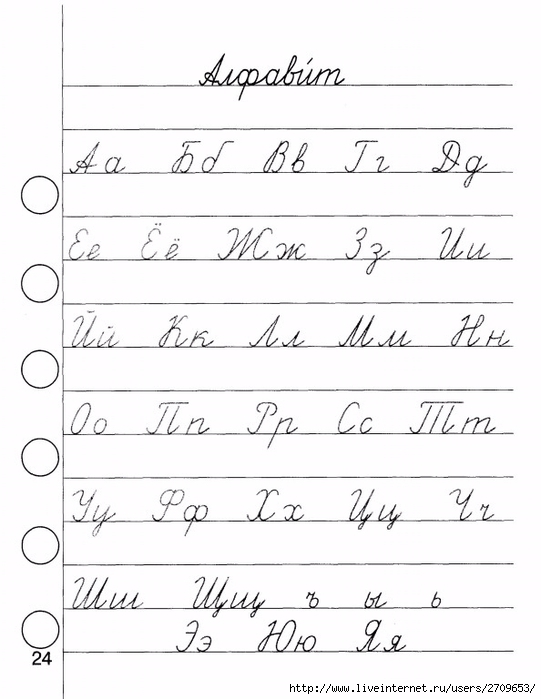 Алфави́т
Аа Бб Вв Гг Дд
Ее Ёё Жж Зз Ии
Йй Кк Лл Мм Нн
Оо Пп Рр Сс Тт
Уу Фф Хх Цц Чч
Шш Щщ ъ ы ь
Ээ Юю Яя
24
http://www.liveinternet.ru/users/2709653/